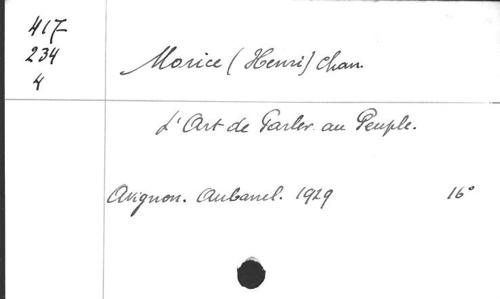 417
234
4
Morice (Henri) Chan.
L'Art de Parler au Peuple.
Avignon. Aubanel. 1929 16°